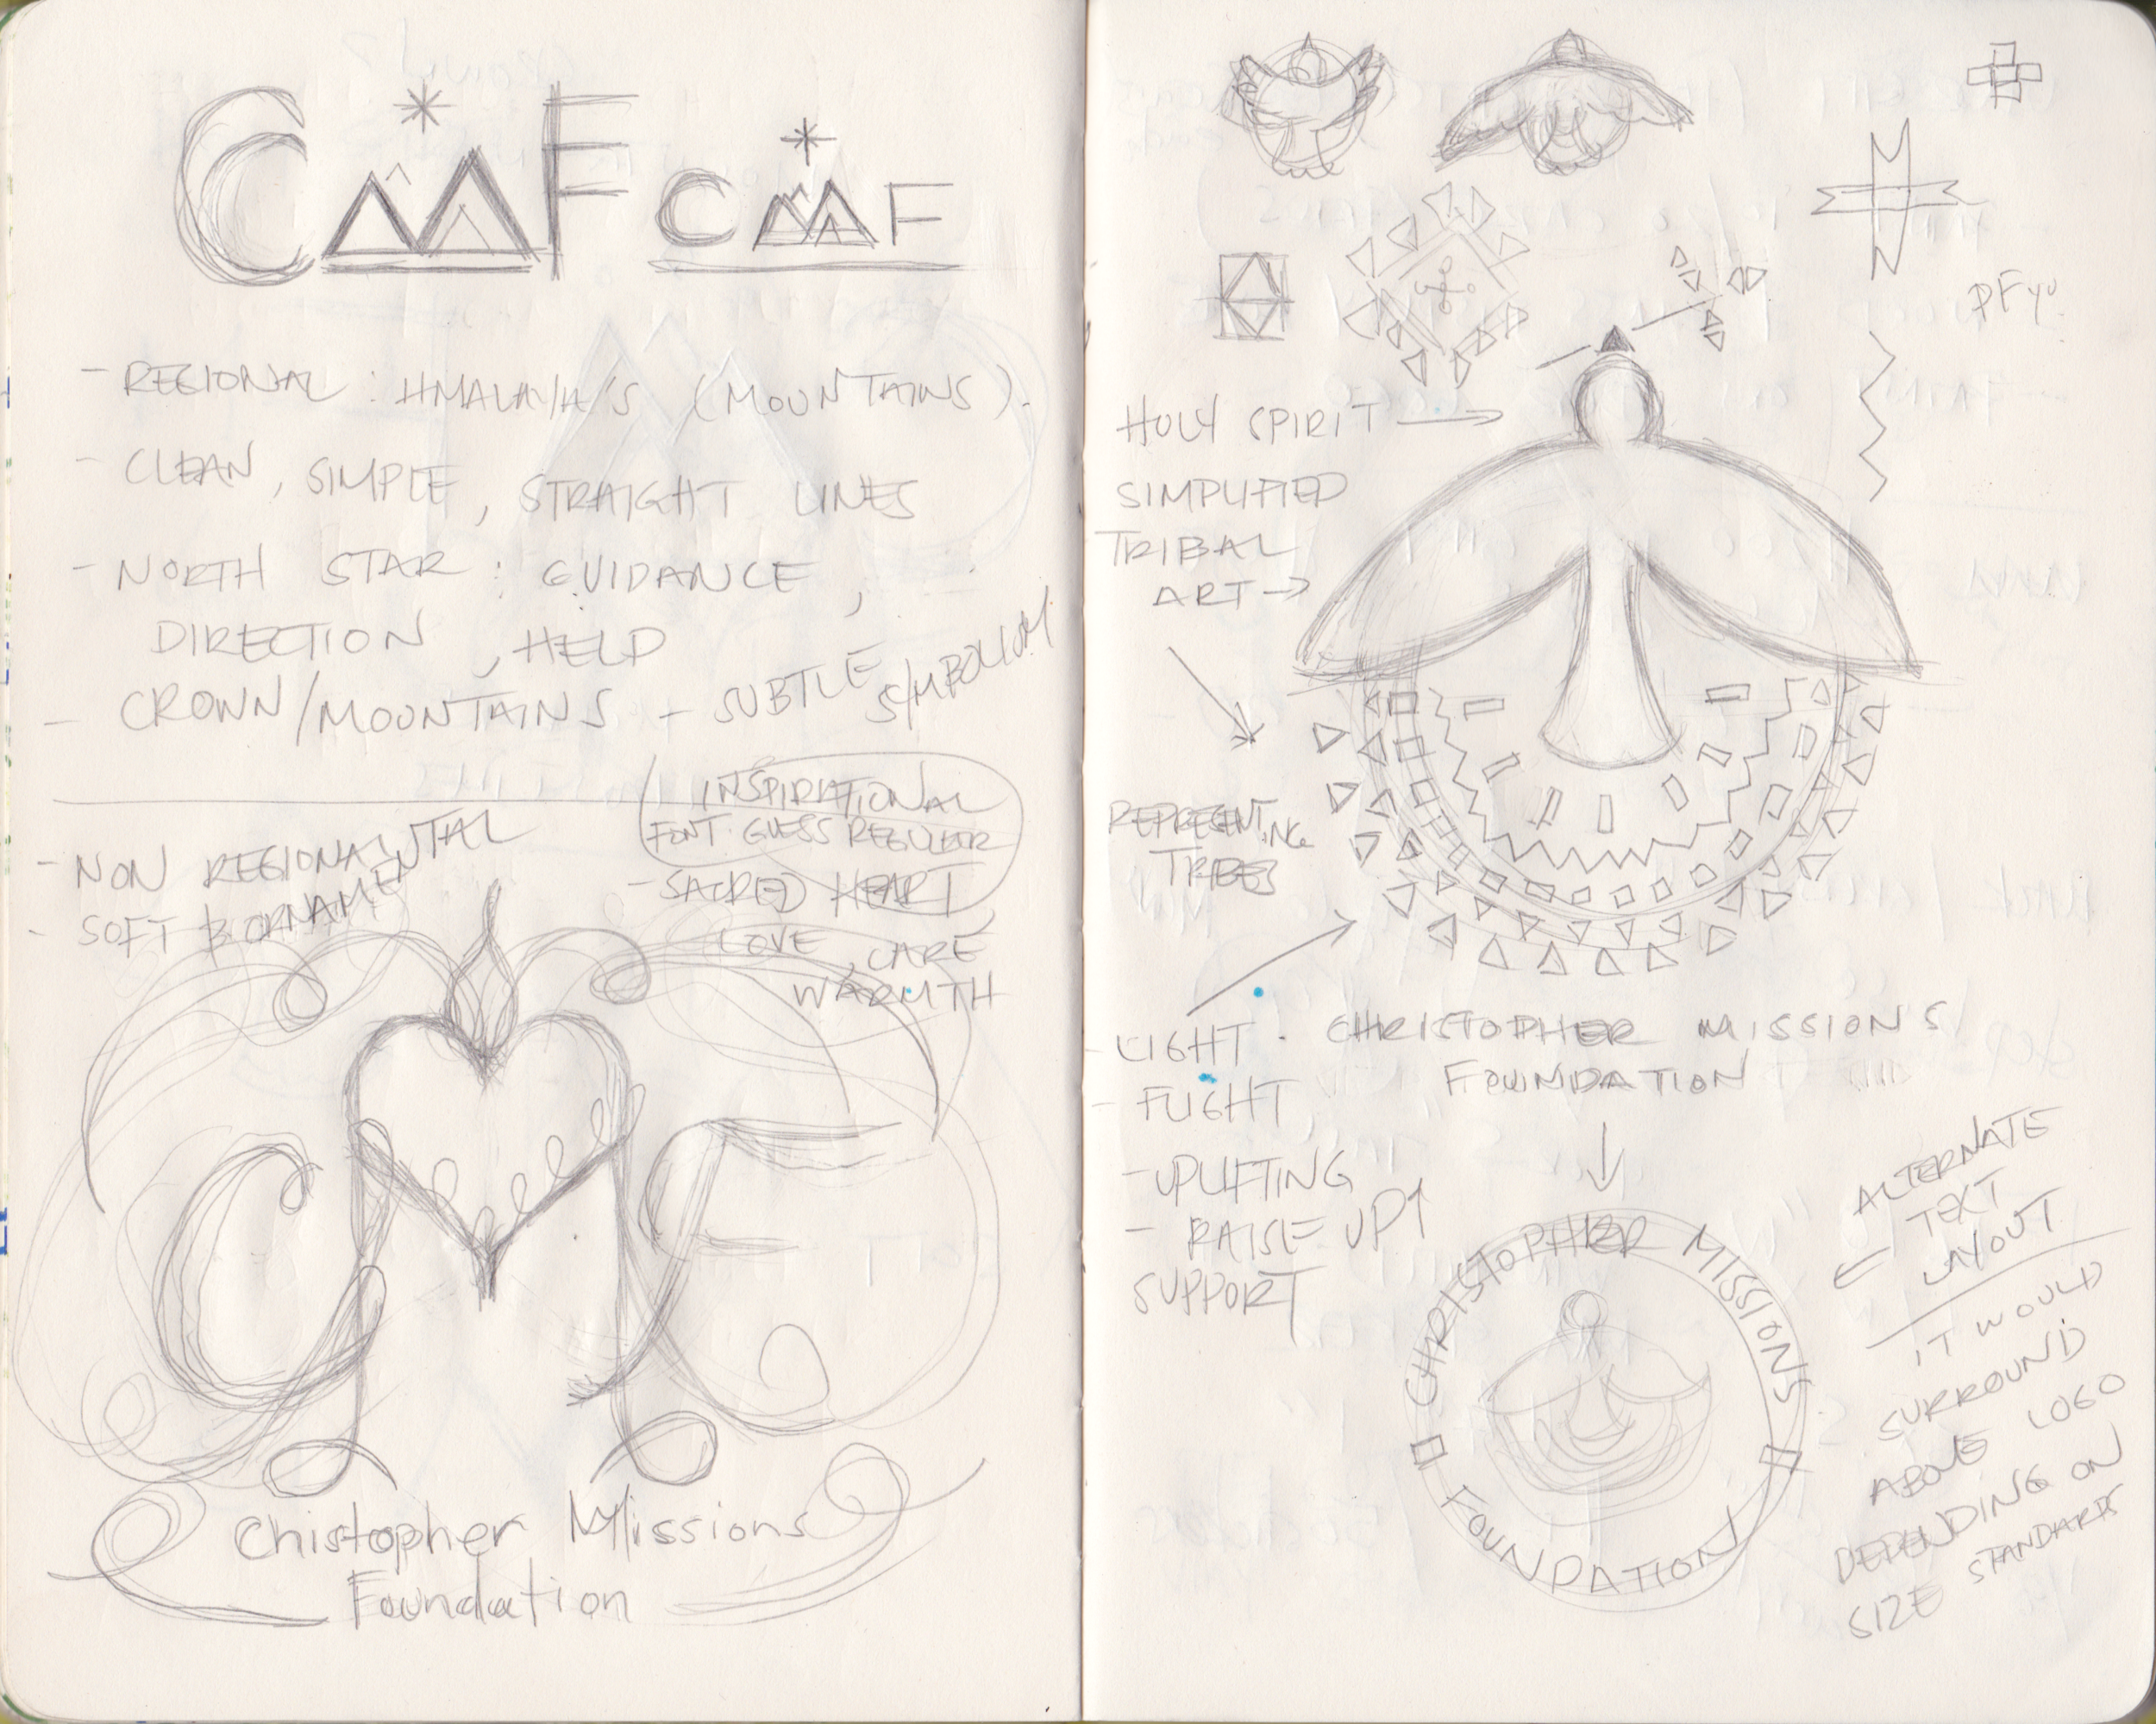 CMF CMF
- REGIONAL : HMALAYA'S (MOUNTAINS).
- CLEAN, SIMPLE, STRAIGHT LINES
- NORTH STAR : GUIDANCE,
DIRECTION, HELD
- CROWN/MOUNTAINS - SUBTLE SYMBOLISM
- NON REGIONAL
- SOFT & ORNAMENTAL
INSPIRATIONAL
FONT: GUESS REGULAR
- SACRED HEART,
LOVE, CARE
WARMTH
CMF
Chistopher Missions
Foundation
HOLY SPIRIT →
SIMPLIFIED
TRIBAL
ART →
REPRESENTING
TRIBES
- LIGHT
- FLIGHT
- UPLIFTING
- RAISE UP↑
SUPPORT
CHRISTOPHER MISSIONS
FOUNDATION
CHRISTOPHER MISSIONS
FOUNDATION
ALTERNATE
TEXT
LAYOUT
IT WOULD
SURROUND
ABOVE LOGO
DEPENDING ON
SIZE STANDARDS